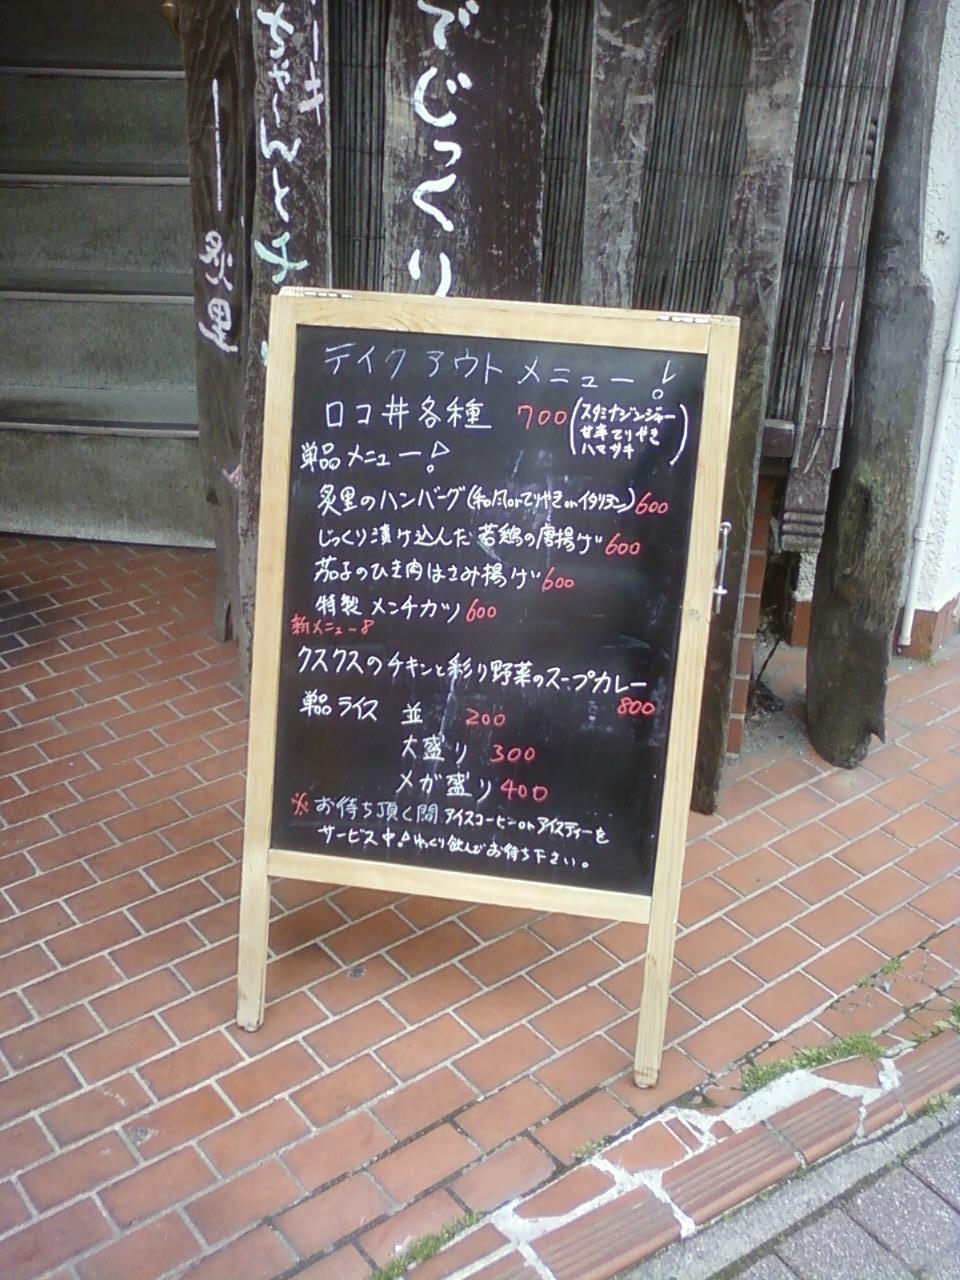 でじっくり
ーキ
ちゃーんとチ
炙里
テイクアウトメニュー!
ロコ丼各種 700(スタミナジンジャー
甘辛てりやき
ハマサキ)
単品メニュー!
炙里のハンバーグ(和風orてりやきorイタリアン)600
じっくり漬け込んだ若鶏の唐揚げ600
茄子のひき肉はさみ揚げ600
特製メンチカツ600
新メニュー♪
クスクスのチキンと彩り野菜のスープカレー
800
単品ライス 並 200
大盛り 300
メガ盛り 400
※お待ち頂く間アイスコーヒーorアイスティーを
サービス中!ゆっくり飲んでお待ち下さい。